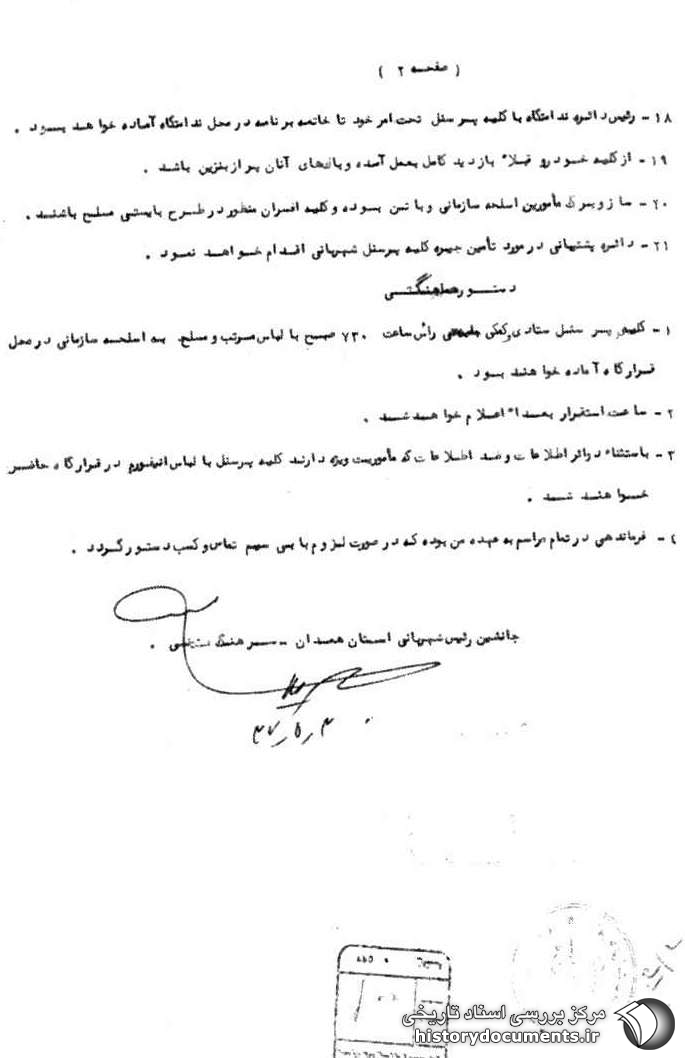 ( صفحه ۲ )
۱۸- رئیس دائره ندامتگاه با کلیه پرسنل تحت امر خود تا خاتمه برنامه در محل ندامتگاه آماده خواهد بود .
۱۹- از کلیه خودرو قبلاً بازدید کامل بعمل آمده و باکهای آنان پر از بنزین باشد .
۲۰- ساز و برگ مأمورین اسلحه سازمانی و باتن بوده و کلیه افسران منظور در طرح بایستی مسلح باشند .
۲۱- دائره پشتیبانی در مورد تأمین جیره کلیه پرسنل شهربانی اقدام خواهد نمود .
دستور هماهنگی
۱- کلیه پرسنل ستادی و کمکی رأس ساعت ۷۳۰ صبح با لباس مرتب و مسلح به اسلحه سازمانی در محل
قرارگاه آماده خواهند بود .
۲- ساعت استقرار بعداً اعلام خواهد شد .
۳- باستثناء دوائر اطلاعات و ضد اطلاعات که مأموریت ویژه دارند کلیه پرسنل با لباس انیفورم در قرارگاه حاضر
خواهند شد .
٤- فرماندهی در تمام مراسم به عهده من بوده که در صورت لزوم با بی سیم تماس و کسب دستور گردد .
جانشین رئیس شهربانی استان همدان - سرهنگ .
مرکز بررسی اسناد تاریخی
historydocuments.ir